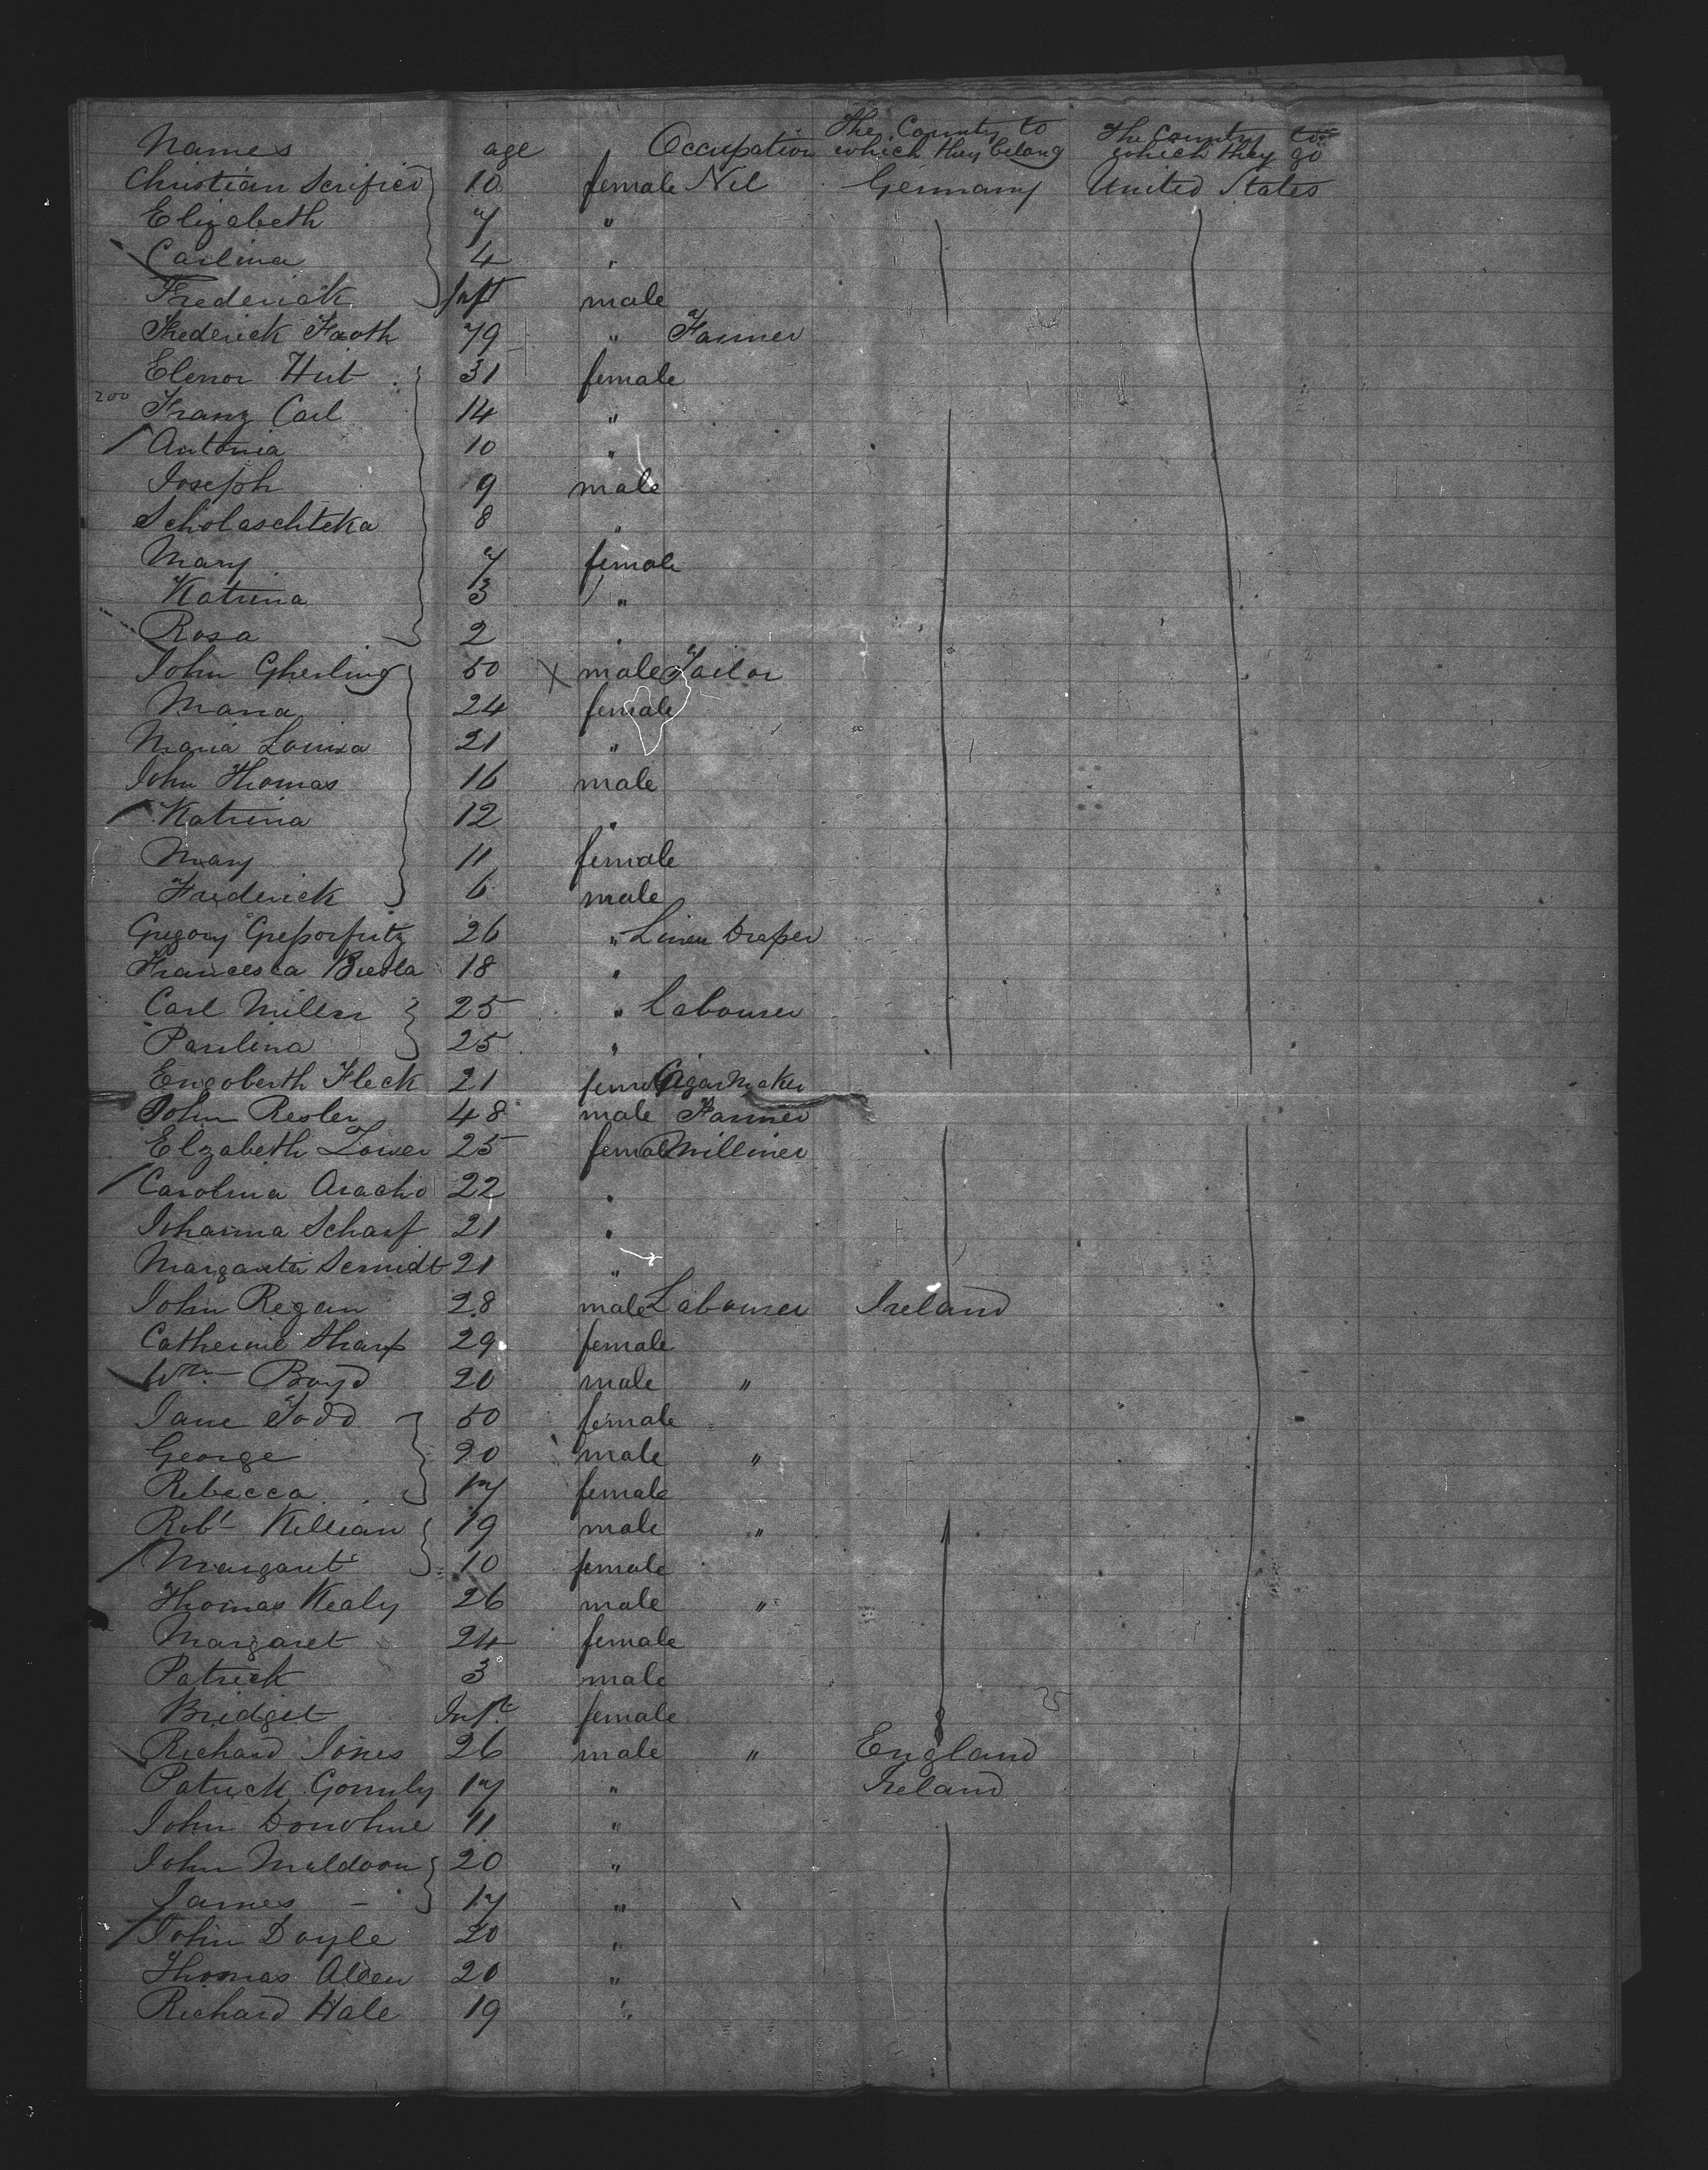 Names age Occupation The Country to which they belong The Country to which they go
Christian Scrifico 10 female Nil Germany United States
Elizabeth 7 "
Carlina 4 "
Frederick Inft male
Frederick Faoth 79 " Farmer
Elenor Hirt 31 female
200 Franz Carl 14 "
Antonia 10 "
Joseph 9 male
Scholaschteka 8 "
Mary 7 female
Katrina 3 "
Rosa 2 "
John Gherling 50 X male Tailor
Maria 24 female
Maria Louisa 21 "
John Thomas 16 male
Katrina 12 "
Mary 11 female
Frederick 6 male
Gregory Greporfritz 26 " Linen Draper
Francesca 18 "
Carl Miller 25 " Labourer
Paulina 25 "
Engoberth Fleck 21 female Cigar Maker
John Resler 48 male Farmer
Elzabeth Lower 25 female Milliner
Carolina 22 "
Johanna Scharf 21 "
Margareta Semidt 21 "
John Regan 28 male Labourer Ireland
Catherine Sharp 29 female
Wm Boyd 20 male "
Jane Todd 50 female
George 20 male "
Rebecca 17 female
Robt Killian 19 male "
Margaret 10 female
Thomas Kealy 26 male "
Margaret 24 female
Patrick 3 male
Bridget Inft female
Richard Jones 26 male " England
Patrick Gormly 17 " Ireland
John Donohue 11 "
John Muldoon 20 "
James - 17 "
John Doyle 20 "
Thomas Alden 20 "
Richard Hale 19 "